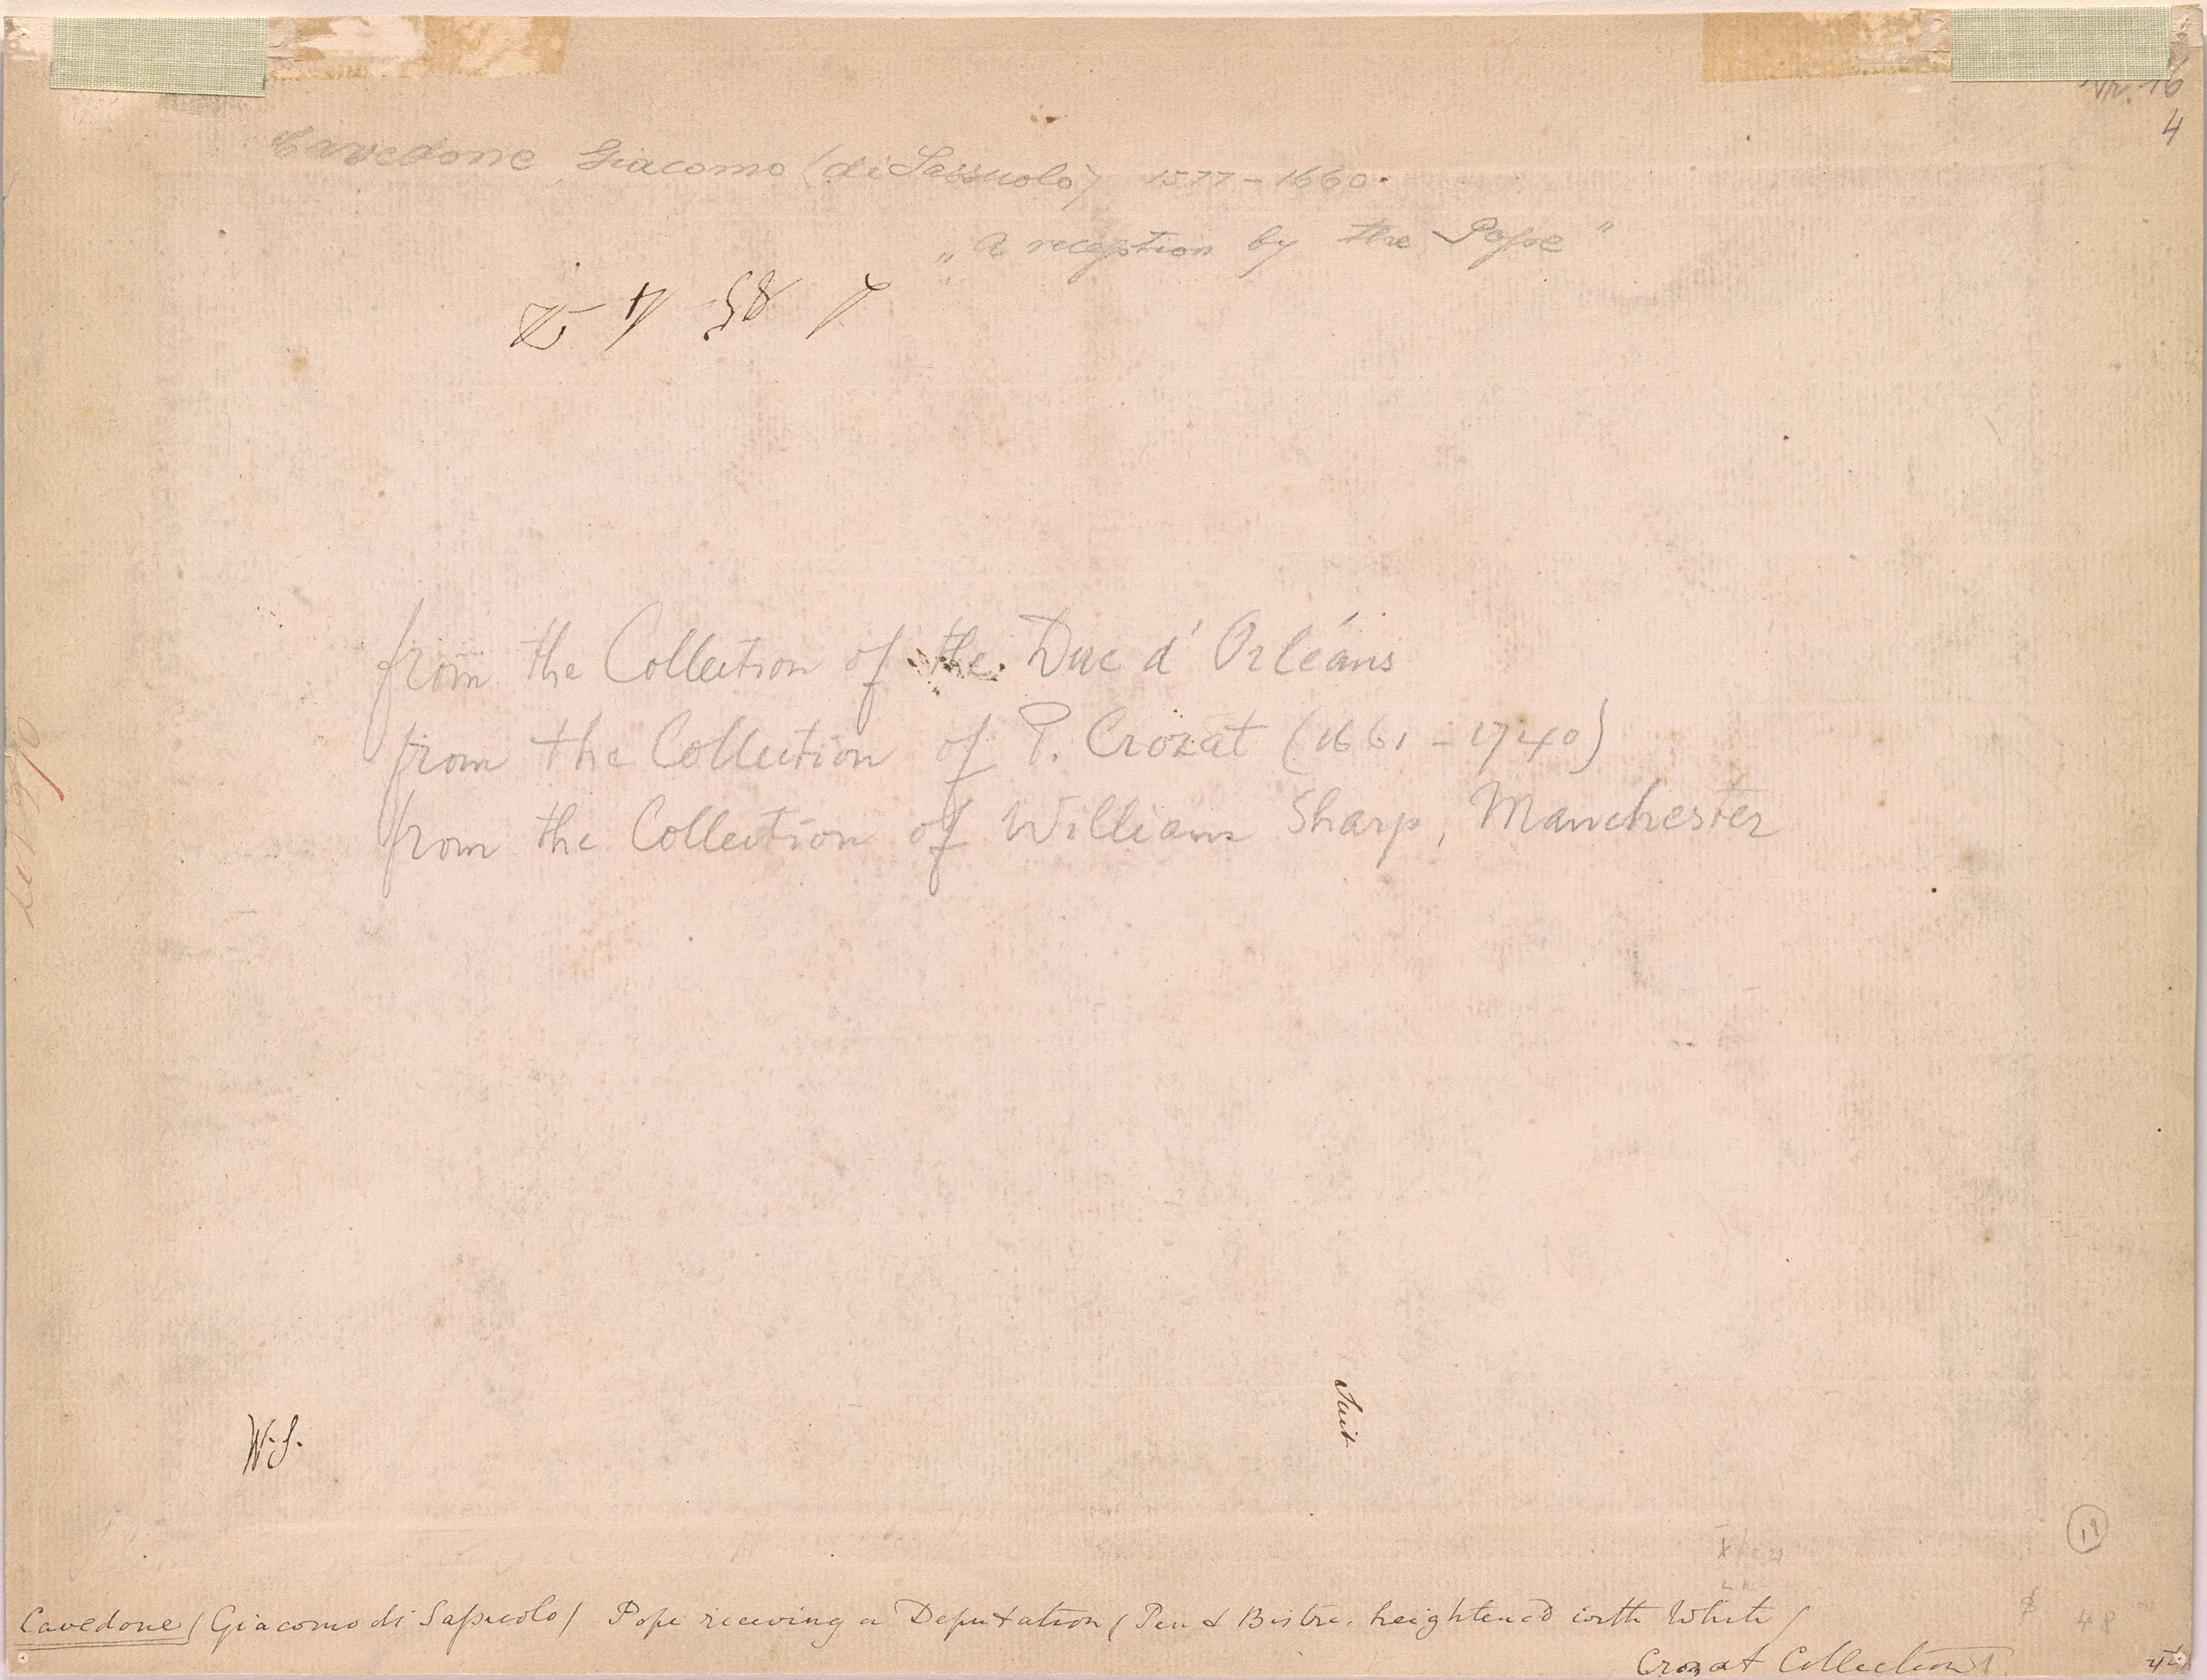 Nr. 16
4
Cavedone Giacomo (di Sassuolo) 1577-1660.
„A reception by the Pope"
from the Collection of the Duc d'Orléans
from the Collection of P. Crozat (1661-1740)
from the Collection of William Sharp, Manchester
W.S.
19
Cavedone (Giacomo di Sassuolo) Pope receiving a Deputation (Pen & Bistre. heightened with White)
48
Crozat Collection